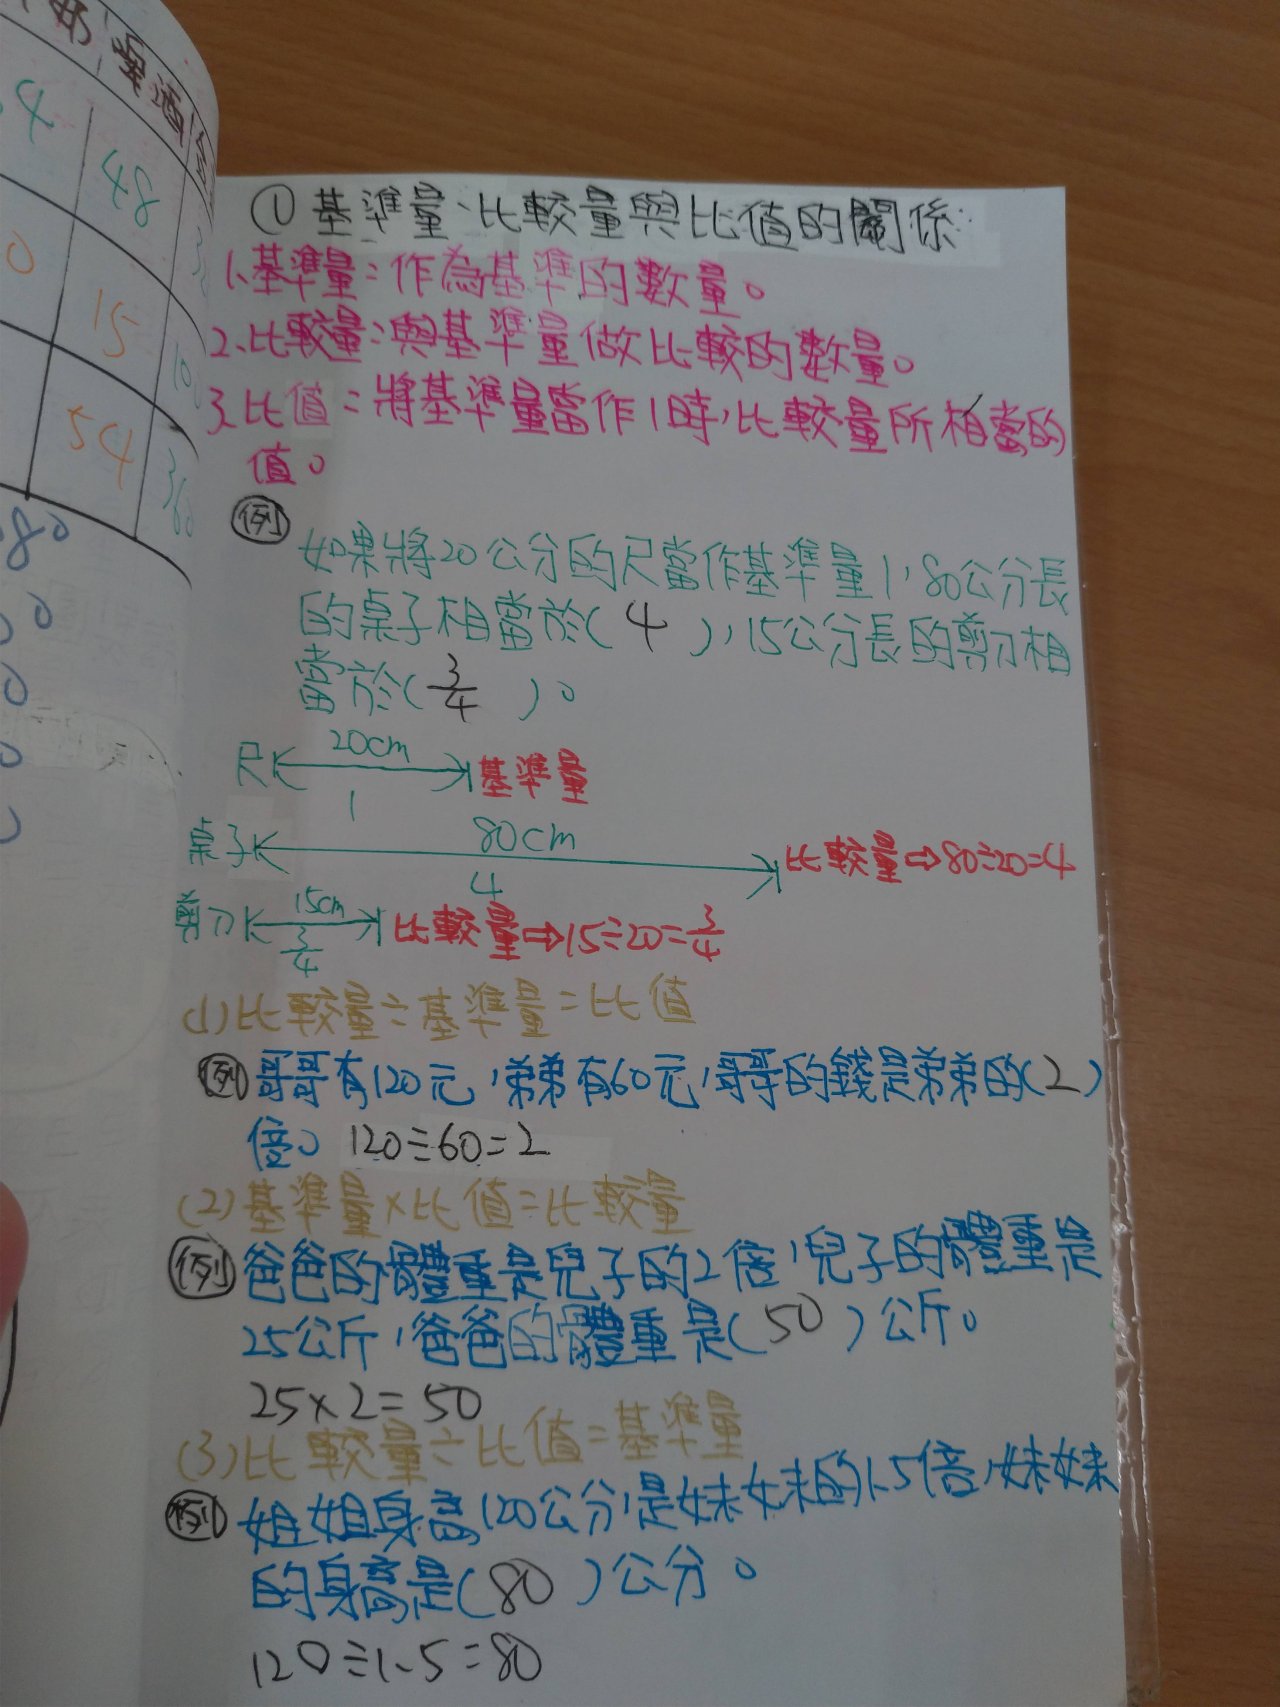 啤酒
4
48
0
15
10
54
360
80
①基準量、比較量與比值的關係:
1.基準量:作為基準的數量。
2.比較量:與基準量做比較的數量。
3.比值:將基準量當作1時,比較量所相當的
值。
例
如果將20公分的尺當作基準量1,80公分長
的桌子相當於(4),15公分長的剪刀相
當於(3/4)。
尺 20cm 基準量
1
桌子 80cm 比較量⇨80÷20=4
4
剪刀 15cm 比較量⇨15÷20=3/4
3/4
(1)比較量÷基準量=比值
例 哥哥有120元,弟弟有60元,哥哥的錢是弟弟的(2)
倍。 120÷60=2
(2)基準量×比值=比較量
例 爸爸的體重是兒子的2倍,兒子的體重是
25公斤,爸爸的體重是(50)公斤。
25×2=50
(3)比較量÷比值=基準量
例 姐姐身高120公分,是妹妹的1.5倍,妹妹
的身高是(80)公分。
120÷1.5=80